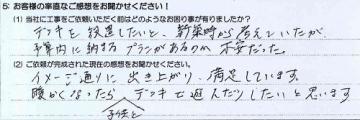 5: お客様の率直なご感想をお聞かせください！
(1) 当社に工事をご依頼いただく前はどのようなお困り事が有りましたか？
デッキを設置したいと、新築時から考えていたが、
予算内に納まるプランがあるのか不安だった。
(2) ご依頼が完成された現在の感想をお聞かせください。
イメージ通りに出来上がり、満足しています。
暖かくなったら、デッキで遊んだりしたいと思います
子供と